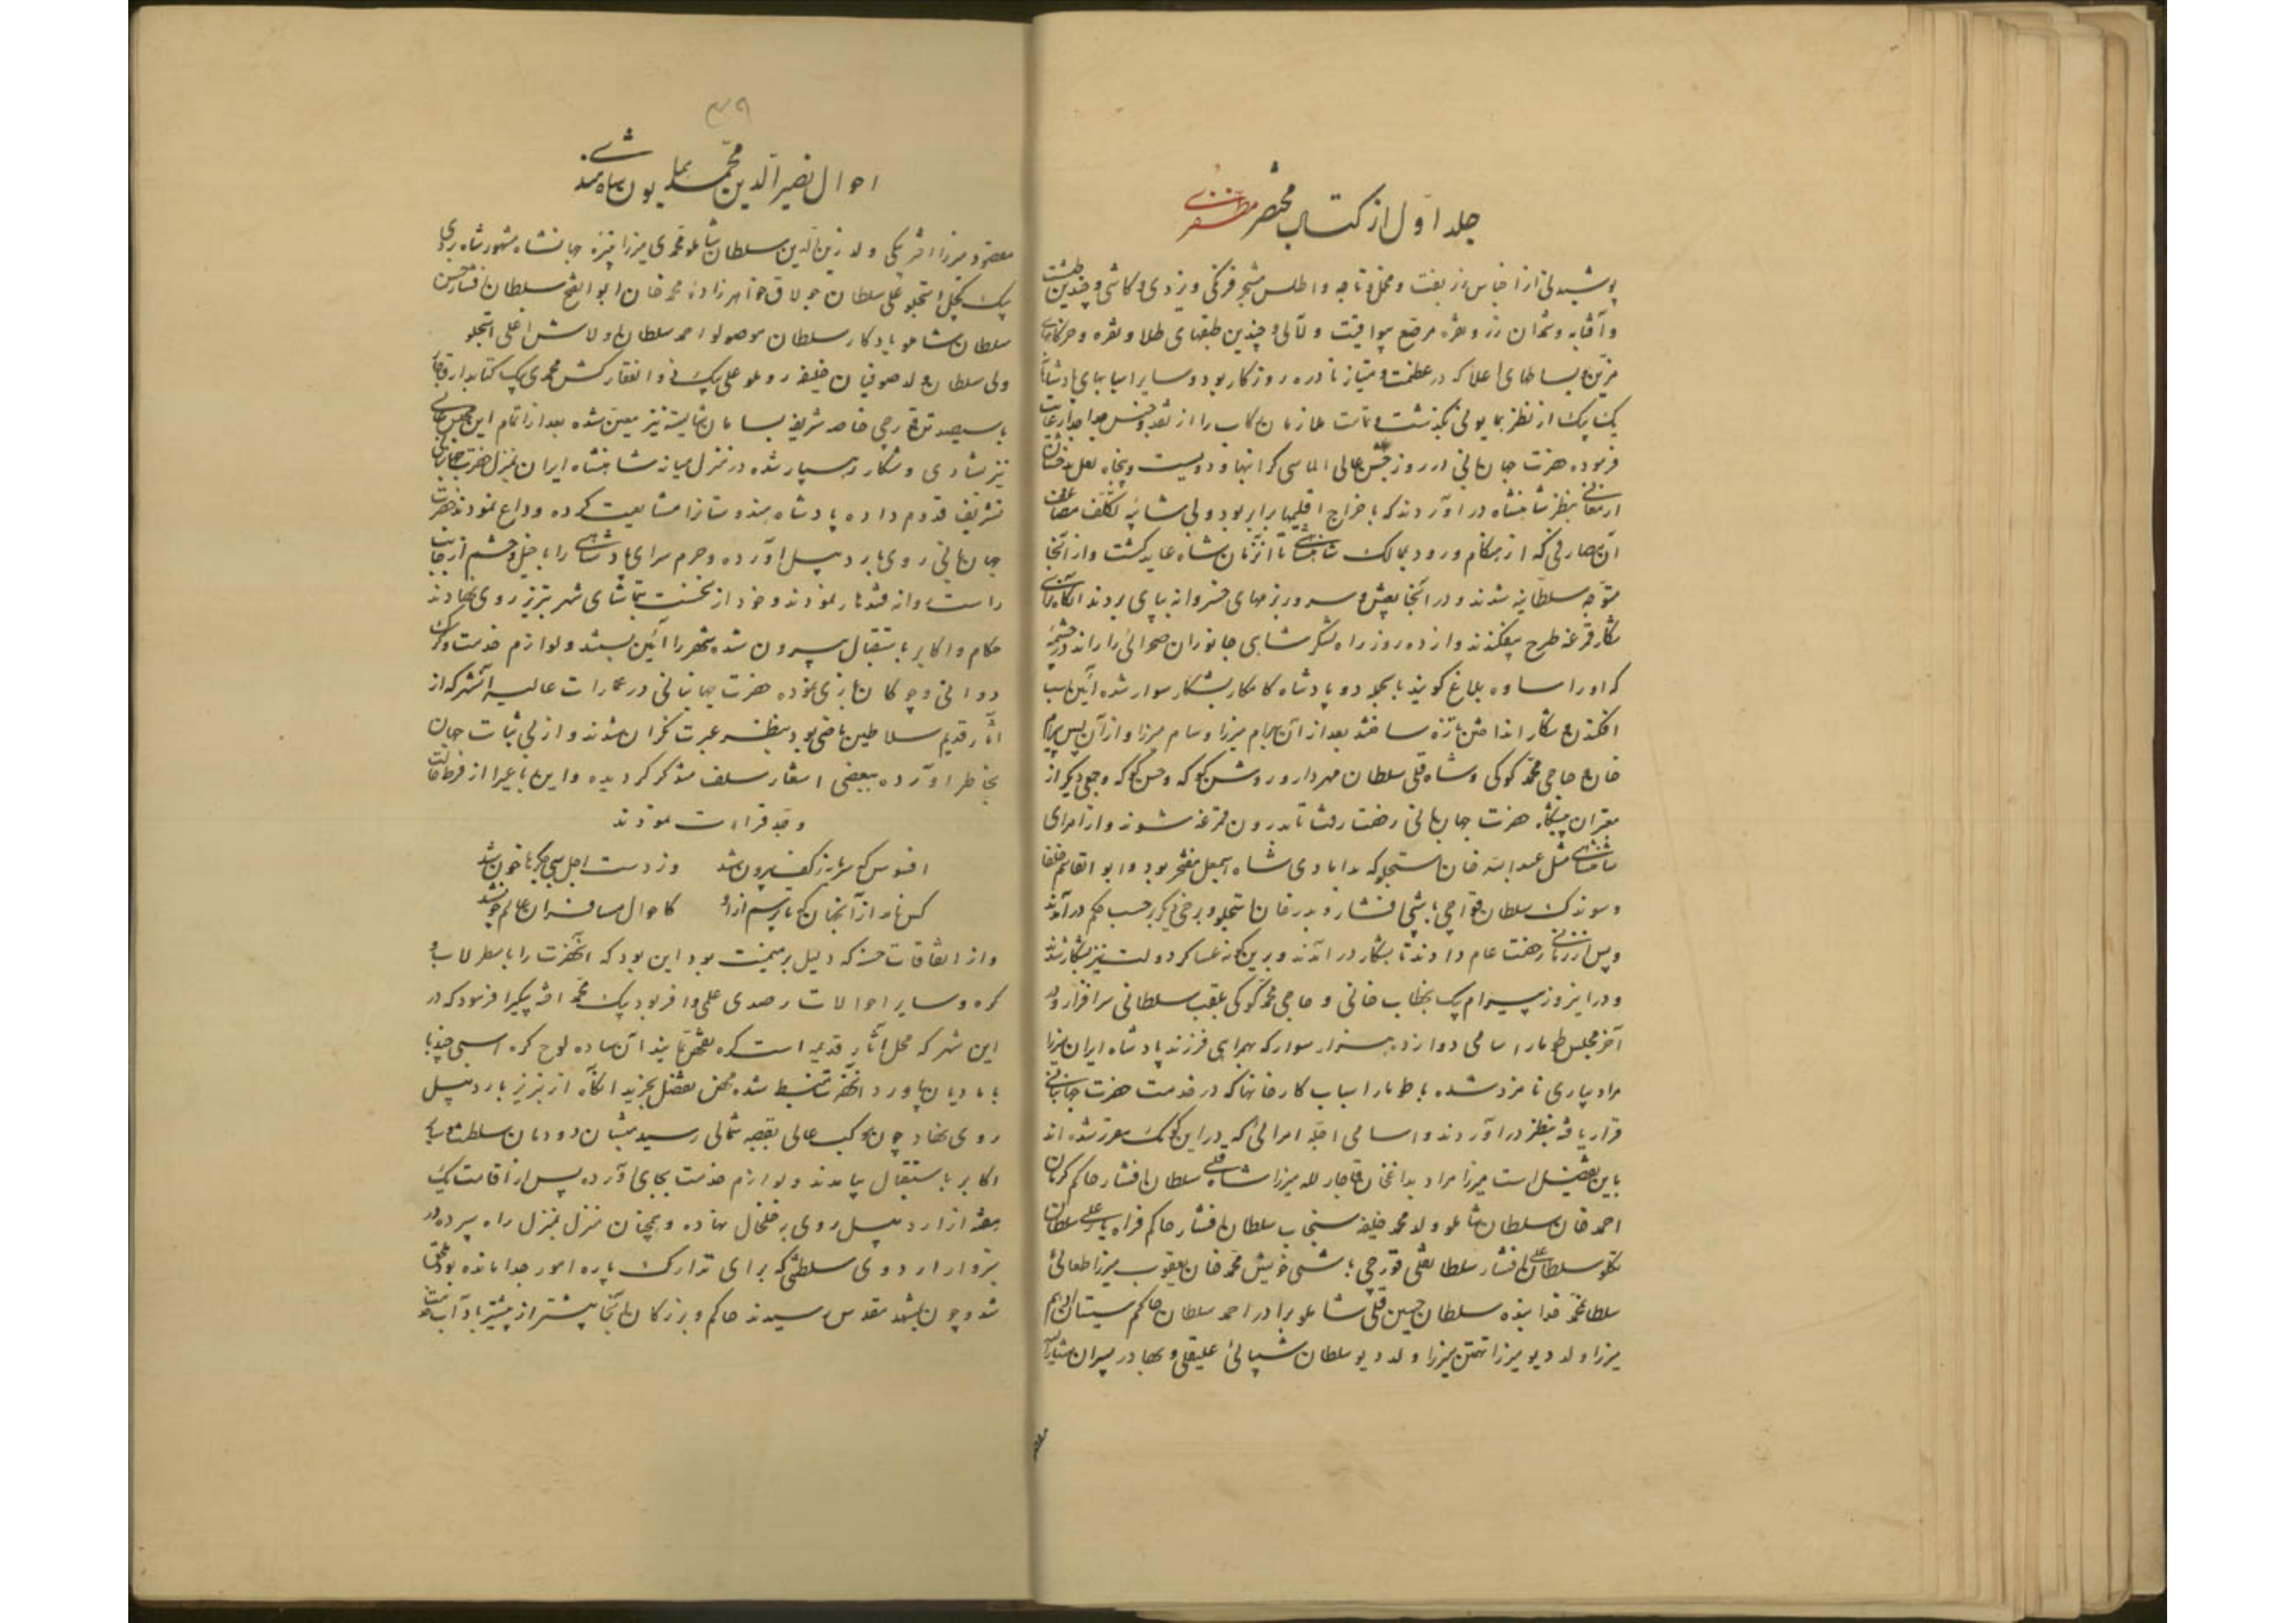 جلد اول از کتاب مختصر مظفری
پوشیدنی از اجناس زربفت و مخمل و تاجه و اطلس مشجر فرنگی و یزدی و کاشی و چندین طشت
و آفتابه و شمعدان زر و نقره مرصع بیواقیت و لآلی و چندین طبقهای طلا و نقره و خرگاههای
مزین و بساطهای اعلا که در عظمت و امتیاز نادره روزگار بود و سایر اسبابهای پادشاهانه
یک یک از نظر همایونی بگذشت و تمامت ملازمان رکاب را از نقد و جنس جدا جدا رعایت
فرموده حضرت جهانبانی در روز جشن عالی الماسی گرانبها و دویست و پنجاه لعل بدخشان
ارمغانی بنظر شاهنشاه درآوردند که با خراج اقلیمها برابر بود و بی شائبه تکلف مضاعف
آن مصارفی که از هنگام ورود بممالک شاهنشاهی تا آنزمان شاه عاید گشت و از آنجا
متوجه سلطانیه شدند و در آنجا بعیش و سرور بزمهای خسروانه بپای بردند آنگاه
شکار قرغه طرح بیفکندند و از ده روز راه لشکر شاهی جانوران صحرائی را راند در چشمه
که او را ساوه بلاغ گویند بالجمله دو پادشاه کامکار بشکار سوار شده آئین اسب
افکندن و شکار انداختن تازه ساختند بعد از آن بهرام میرزا و سام میرزا و از آن پس بیرام
خان و حاجی محمد کوکی و شاه قلی سلطان مهردار و روشن کوکه و حسن کوکه و جمعی دیگر از
مقربان پیشگاه حضرت جهانبانی رخصت رفت تا بدرون قرغه شوند و از امرای
شاهنشاهی مثل عبدالله خان استجلو که بدامادی شاه اسمعیل مفتخر بود و ابوالقاسم خلفا
و سوندک سلطان قورچی باشی افشار و بدرخان استجلو و برخی دیگر برحسب حکم درآمدند
و پس از زمانی رخصت عام دادند تا بشکار درآمدند و برین گونه عساکر دولت نیز بشکار شدند
و در اینروز بیرام بیک بخطاب خانی و حاجی محمد کوکی بلقب سلطانی سرافراز و در
آخر مجلس طومار اسامی دوازده هزار سوار که بهمراهی فرزند پادشاه ایران میرزا
مراد بیاری نامزد شده با طومار اسباب کارخانها که در خدمت حضرت جهانبانی
قرار یافته بنظر درآوردند و اسامی اجله امرائی که در این کومک مقرر شده اند
باین تفصیل است میرزا مراد بداغخان قاجار لله میرزا شاه قلی سلطان افشار حاکم کرمان
احمد خان سلطان شاملو ولد محمد خلیفه سنجاب سلطان افشار حاکم فراه یار علی سلطان
تکلو سلطان علی افشار سلطانقلی قورچی باشی خویش محمد خان یعقوب میرزا طغائی
سلطان محمد خدابنده سلطان حسین قلی شاملو برادر احمد سلطان حاکم سیستان ادهم
میرزا ولد دیو میرزا تهمتن میرزا ولد دیو سلطان شیبانی علیقلی و بهادر پسران
احوال نصیرالدین محمد همایون پادشاه هند
مقصود میرزا آخته بیگی ولد زین الدین سلطان شاملو محمدی میرزا نبیره جهانشاه مشهور شاه بردی
بیک کچل استجلو علی سلطان چولاق خواهرزاده محمد خان ابوالفتح سلطان افشار حسن
سلطان شاملو یادگار سلطان موصولو احمد سلطان ولاش اغلی استجلو
ولی سلطان ولد صوفیان خلیفه روملو علی بیک ذوالفقارکش محمدی بیک کتابدار قاجار
با سیصد تن قورچی خاصه شریفه بسامان شایسته نیز معین شده بعد از اتمام این مجلس عالی
نیز شادی و شکار رهسپار شده در منزل میانه شاهنشاه ایران بمنزل حضرت جهانبانی
تشریف قدوم داده پادشاه هندوستان را مشایعت کرده وداع نمودند حضرت
جهانبانی روی باردبیل آورده و حرم سرای پادشاهی را با خیل و حشم از جانب
راست روانه قندهار نمودند و خود از نخست بتماشای شهر تبریز روی نهادند
حکام و اکابر باستقبال بیرون شده شهر را آئین بستند و لوازم خدمت و گرگ
دوانی و چوگان بازی نموده حضرت جهانبانی در عمارات عالیه آنشهر که از
آثار قدیم سلاطین ماضی بود بنظر عبرت نگران شدند و از بی ثبات جهان
بخاطر آورده ببعضی اشعار سلف متذکر گردیده و این رباعی را از فرط حالت
وجد قراءت نمودند
افسوس که سرمایه ز کف بیرون شد
وز دست اجل بسی جگرها خون شد
کس نامد از آنجهان که تا پرسم ازو
کاحوال مسافران عالم چون شد
و از اتفاقات حسنه که دلیل بر میمنت بود این بود که آنحضرت را باسطرلاب و
کره و سایر احوالات رصدی علمی وافر بود بیک محمد آخته بیگی را فرمود که در
این شهر که محل آثار قدیمه است کره تفحص نمایند آن ساده لوح کره اسبی چند با
مادیان بیاورد آنحضرت منبسط شده محض تفضل بخرید آنگاه از تبریز باردبیل
روی نهاد چون موکب عالی بقصبه شمالی رسید ایشان دودمان سلطنت و
اکابر باستقبال بیامدند و لوازم خدمت بجای آورده پس از اقامت یک
هفته از اردبیل روی بخلخال نهاده و همچنان منزل بمنزل راه سپرده در
سبزوار اردوی سلطنتی که برای تدارک پاره امور جدا مانده بود ملحق
شد و چون بمشهد مقدس رسیدند حاکم و بزرگان آنجا پیشتر از پیشتر